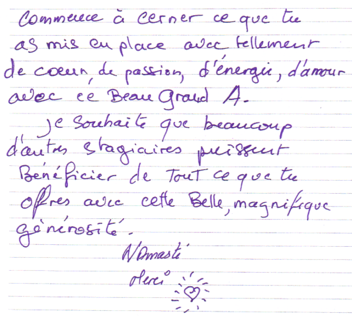 Commence à cerner ce que tu
as mis en place avec tellement
de coeur, de passion, d'énergie, d'amour
avec ce Beau Grand A.
Je souhaite que beaucoup
d'autres stagiaires puissent
Bénéficier de Tout ce que tu
offres avec cette Belle, magnifique
générosité.
Namasté
Merci